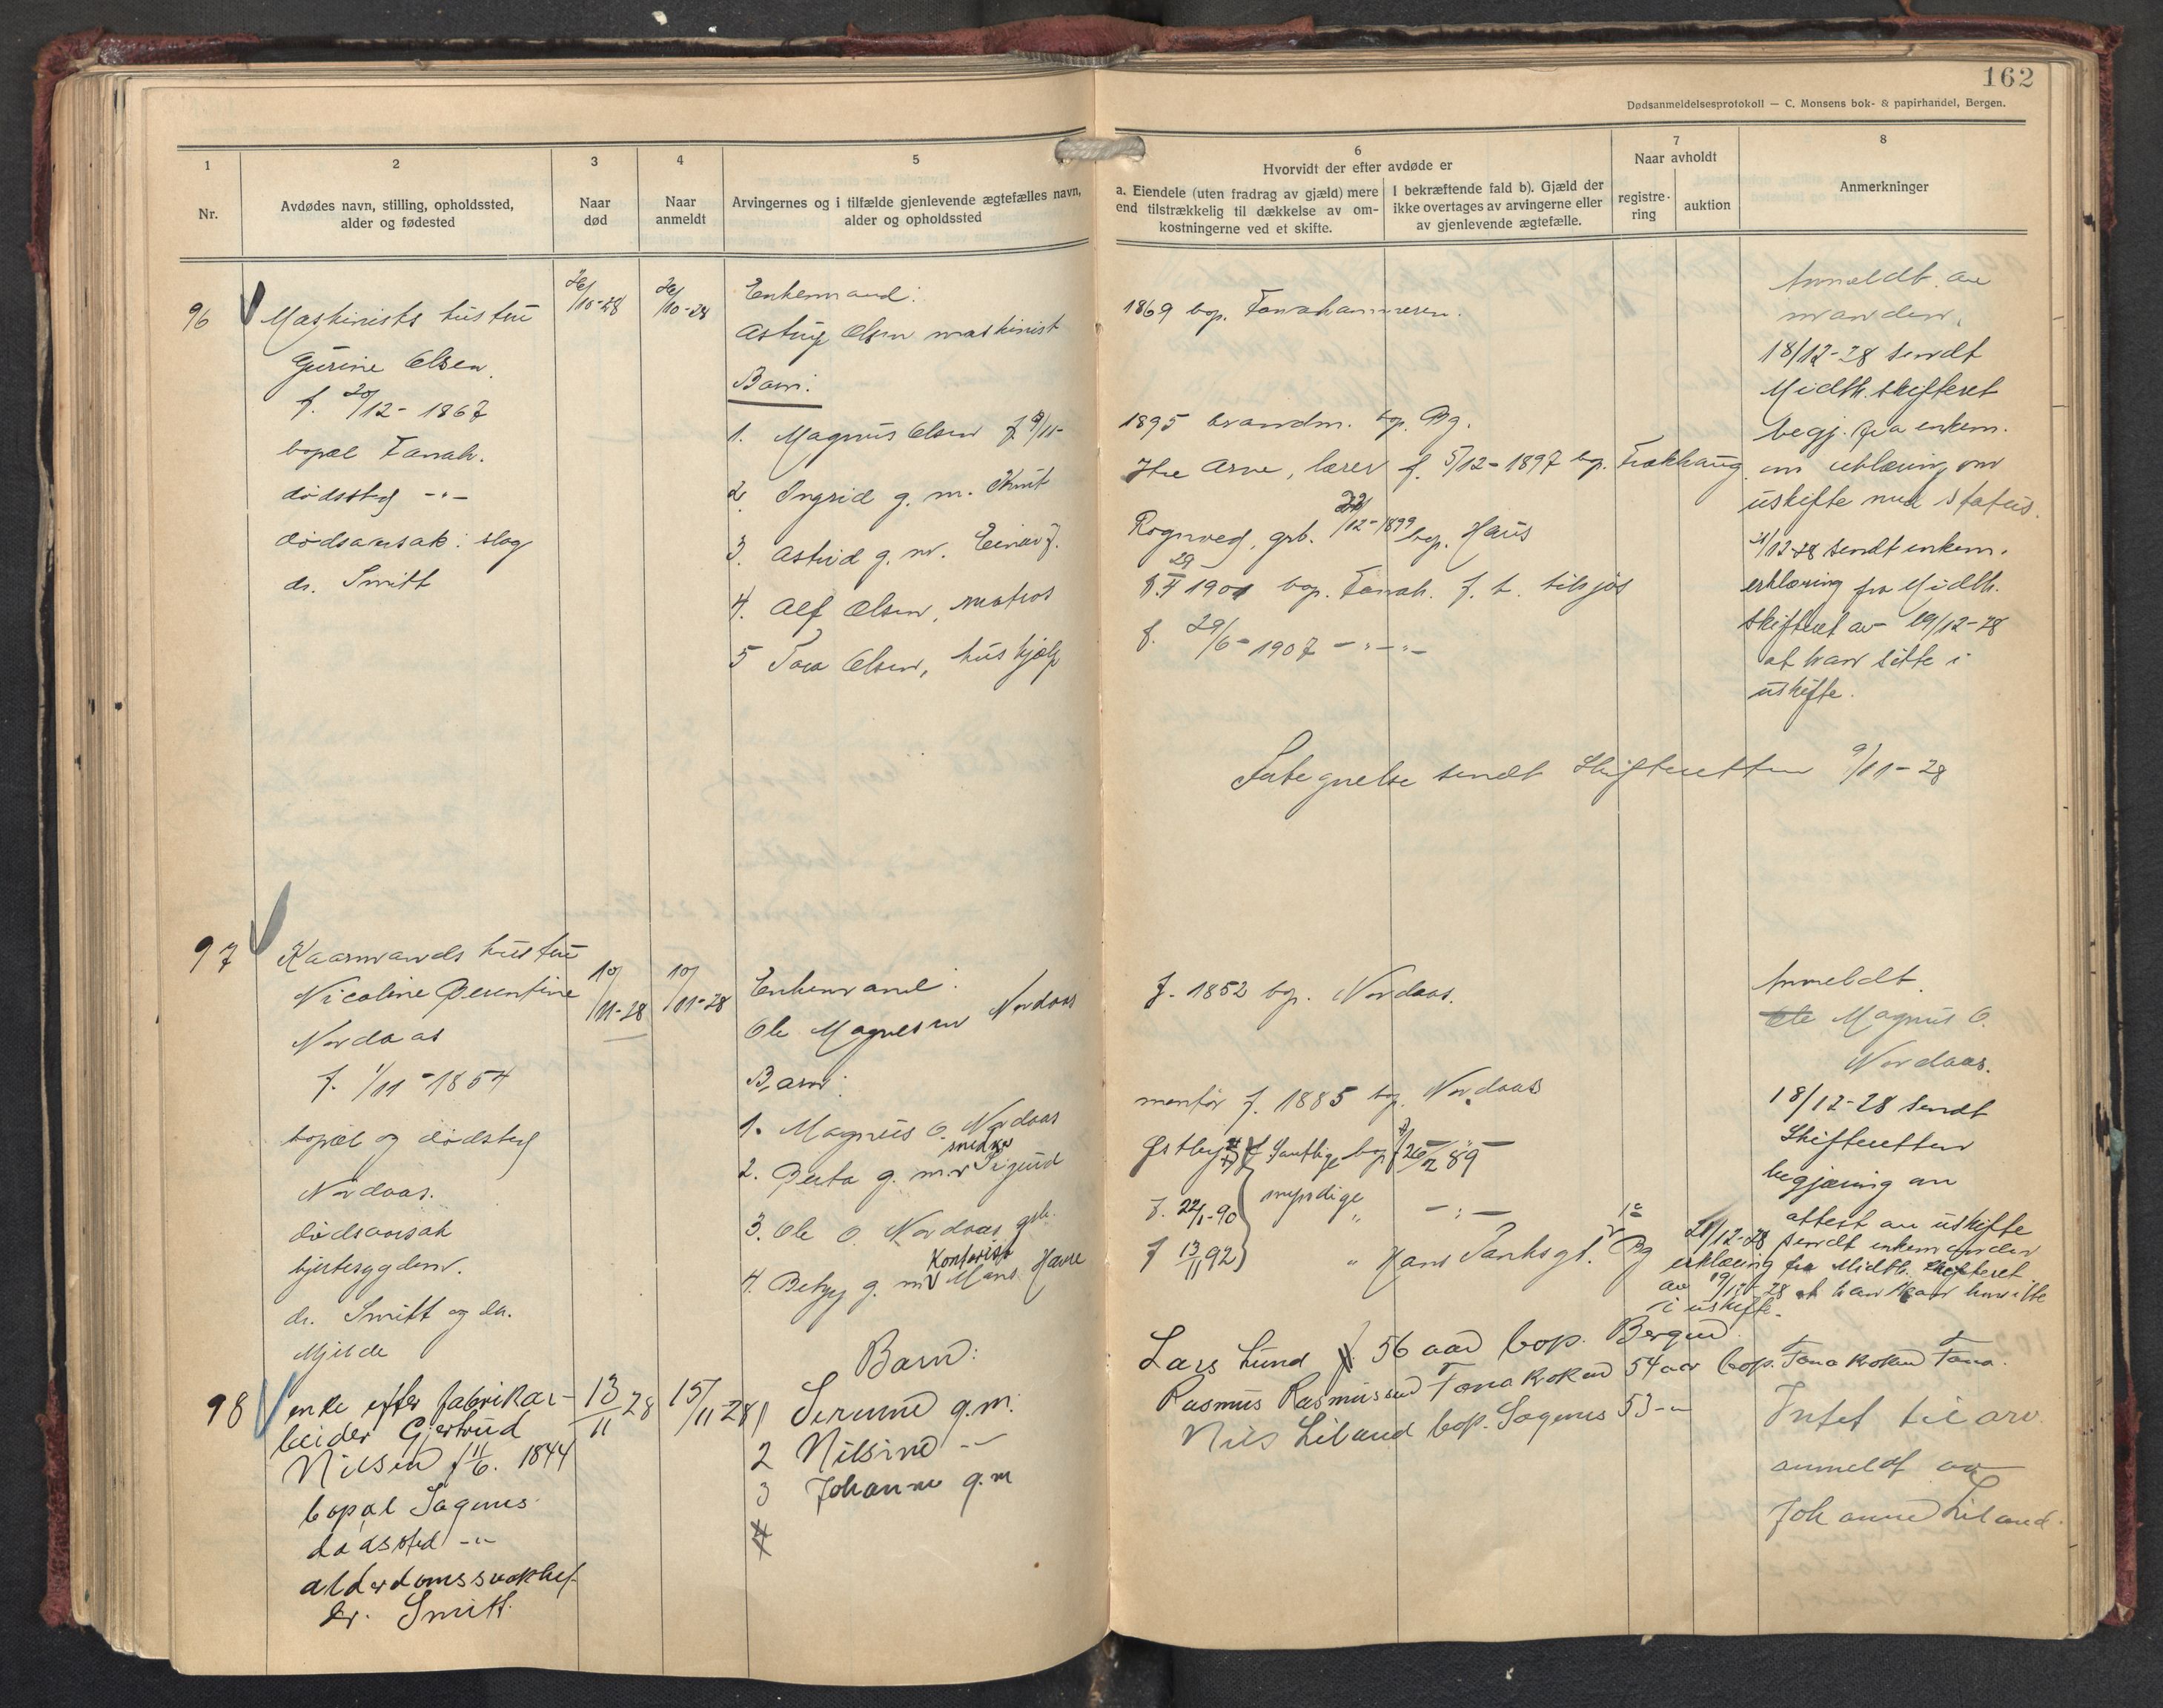 162
Dødsanmeldelsesprotokoll — C. Monsens bok- & papirhandel, Bergen.
1
2
3
4
5
6
7
8
Nr.
Avdødes navn, stilling, opholdssted,
alder og fødested
Naar
død
Naar
anmeldt
Arvingernes og i tilfælde gjenlevende ægtefælles navn,
alder og opholdssted
Hvorvidt der efter avdøde er
a. Eiendele (uten fradrag av gjæld) mere
end tilstrækkelig til dækkelse av om-
kostningerne ved et skifte.
I bekræftende fald b). Gjæld der
ikke overtages av arvingerne eller
av gjenlevende ægtefælle.
Naar avholdt
registre-
ring
auktion
Anmerkninger
96
Maskinists hustru
Gurine Olsen
f. 20/12 - 1867
bopæl Fanah.
dødssted -"-
dødsaarsak: slag
dr. Smitt
26/10-28
26/10-28
Enkemand:
Olsen maskinist
Barn:
1. Magnus Olsen f. 9/11-
2. Ingrid g. m. Knut
3. Astrid g. m. Einar J.
4. Alf Olsen, matros
5 Olsen, hushjælp
1869 bop. Fanahammeren.
1895 brandm. bop. Bg.
Arne, lærer f. 5/12-1897 bop.
Rognved, grb. 22/12-1899 bop. Haus
29 1901 bop. Fanah. f. t. tilsjøs
f. 29/6-1907 -"-"-
Anmeldt av
manden.
18/12-28 sendt
Midth. skifteret
begj. fra enkem.
om erklæring om
uskifte med status.
21/12-28 sendt enkem.
erklæring fra Midth.
skifteret av 19/12-28
at han sitte i
uskifte.
Fortegnelse sendt Skifteretten 9/11-28
97
Kaarmands hustru
Nicoline Berentine
Nordaas
f. 1/11-1854
bopæl og dødssted
Nordaas.
dødsaarsak
hjertesygdom.
dr. Smitt og dr.
Mjelde
10/11-28
10/11-28
Enkemand:
Ole Magnesen Nordaas
Barn:
1. Magnus O. Nordaas
snekker
2. Berta g. m. Sigurd
3. Ole O. Nordaas grb.
Kontorist
4. Betzy g. m. Mons Havre
f. 1852 bop. Nordaas.
montør f. 1885 bop. Nordaas
Østby Samtlige bop. f 26/2 89 -"-
f. 22/1-90 myndige " -:-
f 13/11 92 " Hans Tanksgt. 12 Bg
Anmeldt
Ole Magnus O.
Nordaas.
18/12-28 sendt
Skifteretten
begjæring om
attest om uskifte
21/12-28 sendt enkemanden
erklæring fra Midth. Skifteret
av 19/12-28 at han kan
i uskifte.
98
enke efter fabrikar-
beider Gjertrud
Nilsen f 11/6. 1844
bopæl Sagenes
dødssted -"-
alderdomssvakhet
dr. Smitt
13/11 28
15/11-28
Barn:
1 g.m.
2 Nilsine -"-
3 Johanne g.m
4
Lars Lund 56 aar bop. Bergen
Rasmus Rasmussen Fanakoken 54 aar bop. Fanakoken Fana.
Nils Liland bop. Sagenes 53-"-
Intet til arv
anmeldt av
Johanne Liland.